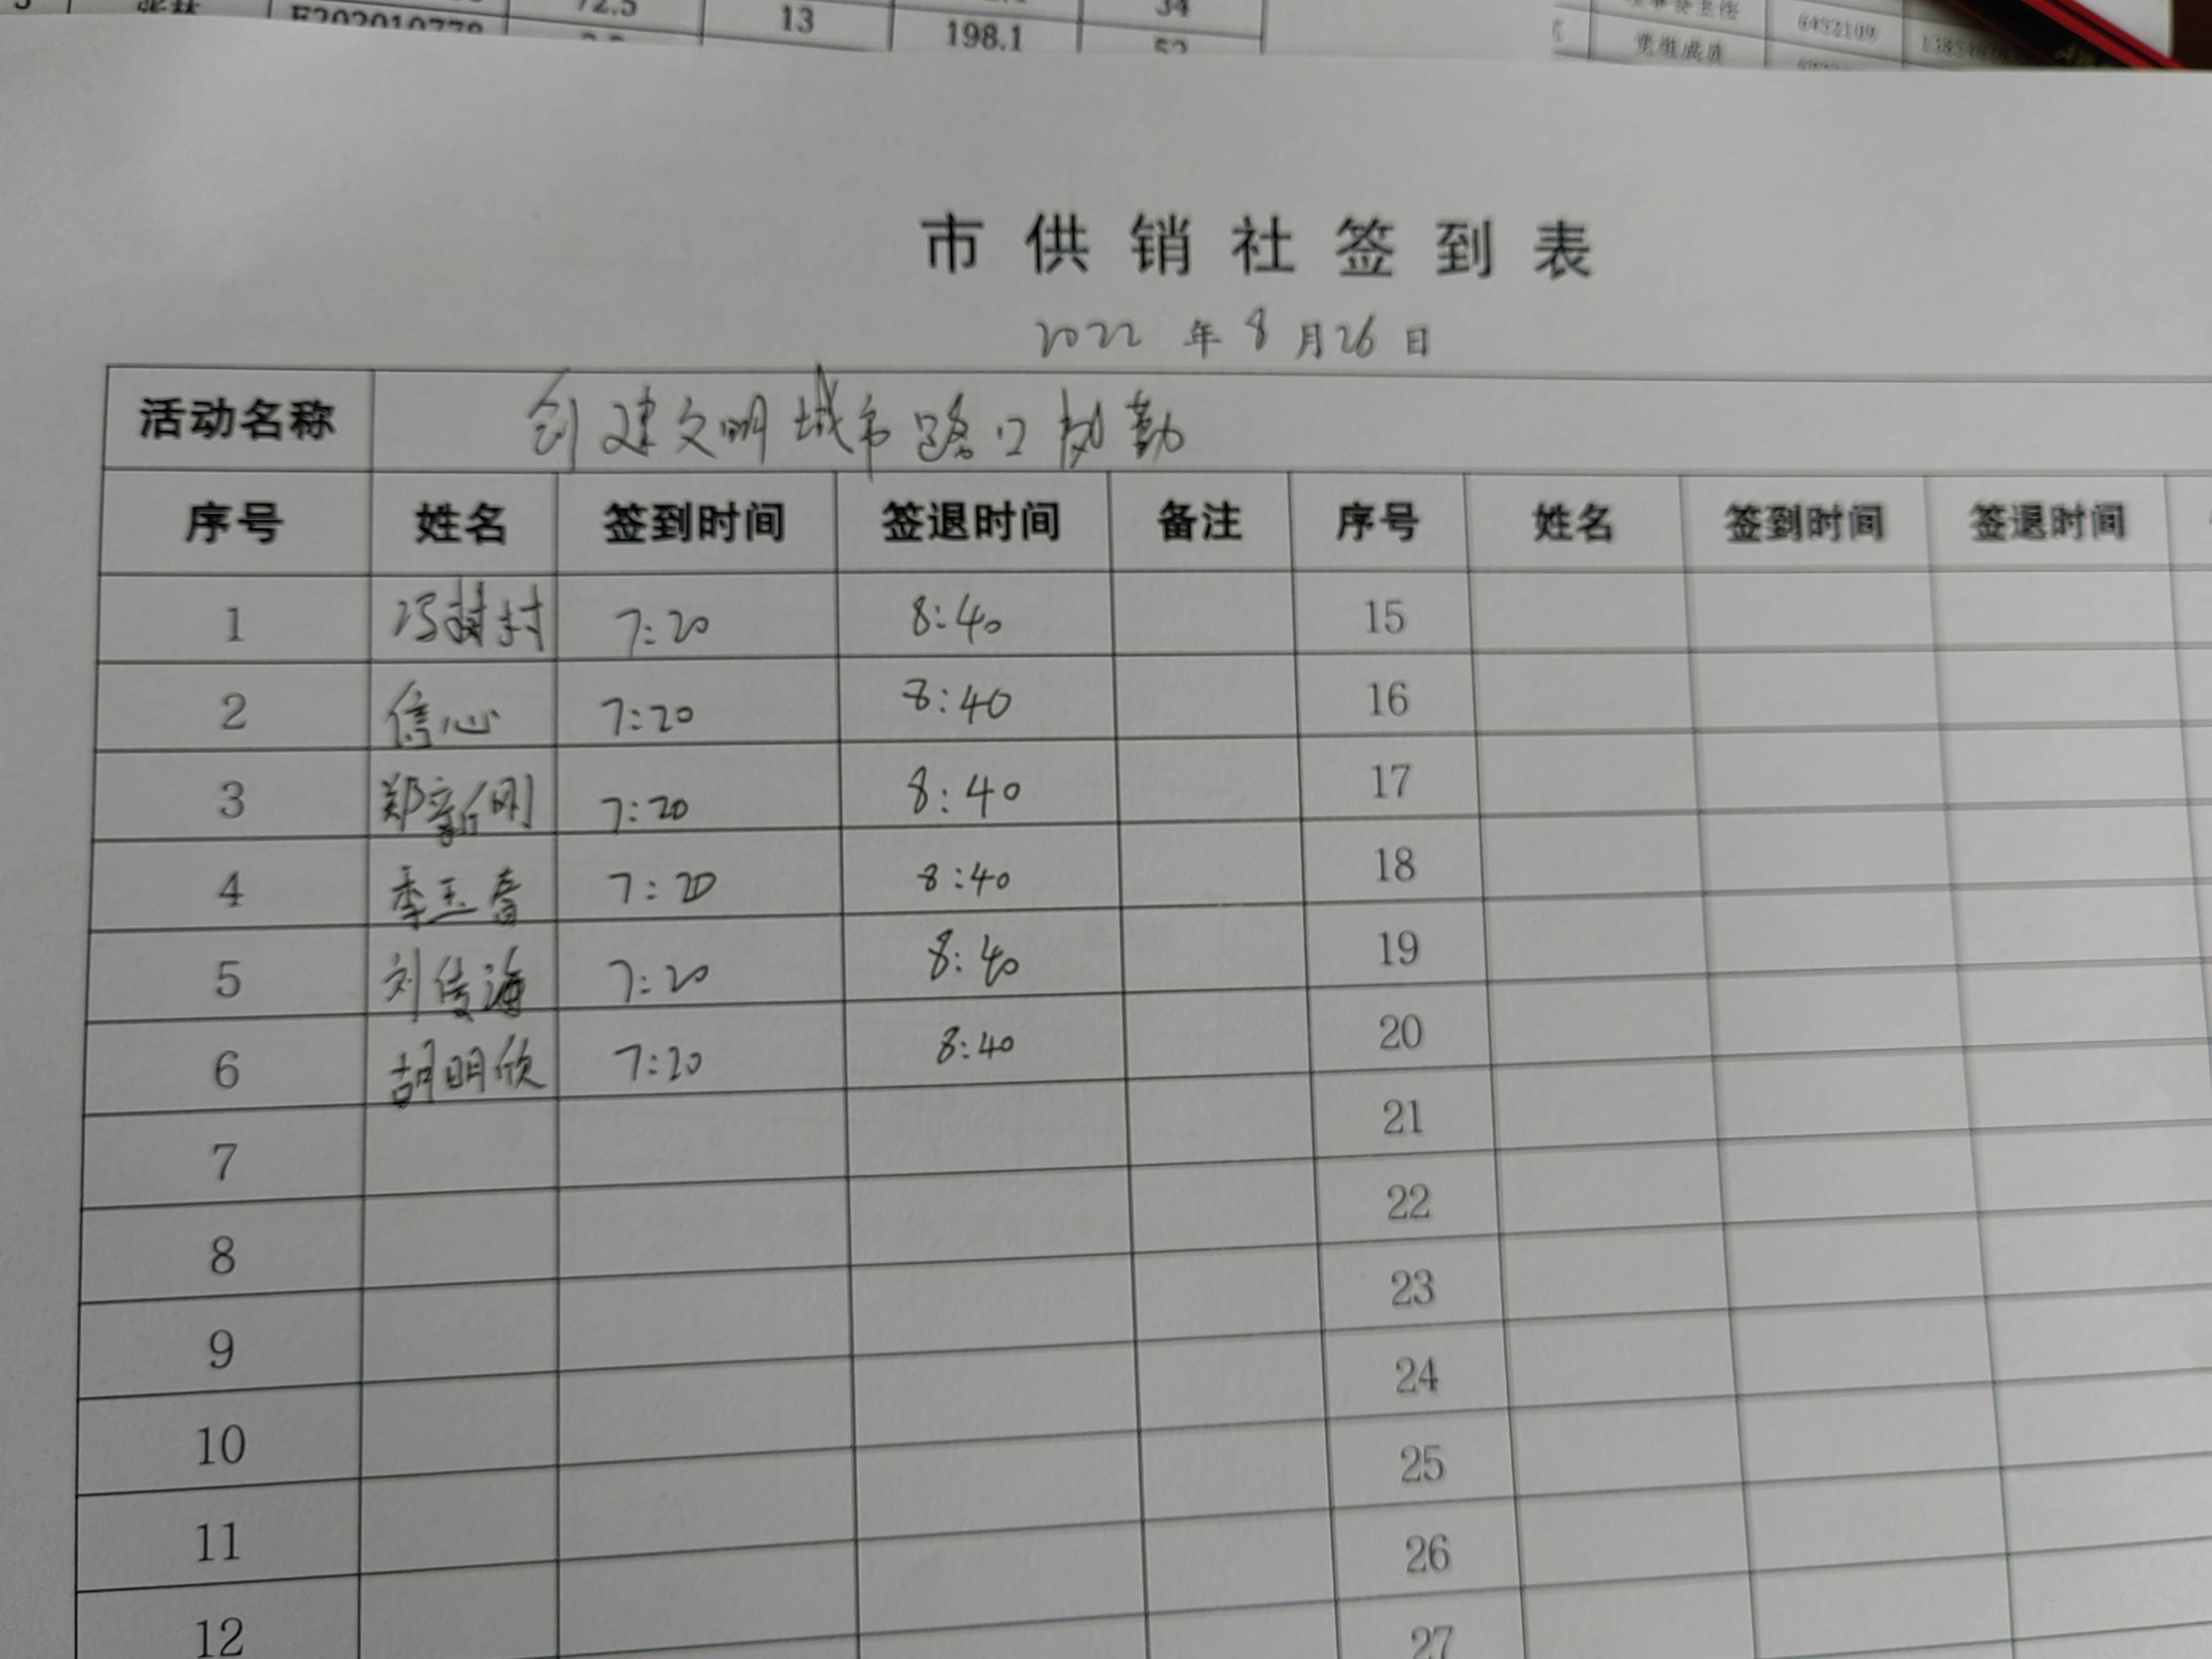 72.5
13
198.1
34
市供销社签到表
2022年8月26日
活动名称 创建文明城市路口执勤
序号 姓名 签到时间 签退时间 备注 序号 姓名 签到时间 签退时间
1 冯树村 7:20 8:40 15
2 信心 7:20 8:40 16
3 郑新刚 7:20 8:40 17
4 季玉春 7:20 8:40 18
5 刘传海 7:20 8:40 19
6 胡明欣 7:20 8:40 20
7 21
8 22
9 23
10 24
11 25
12 26
27